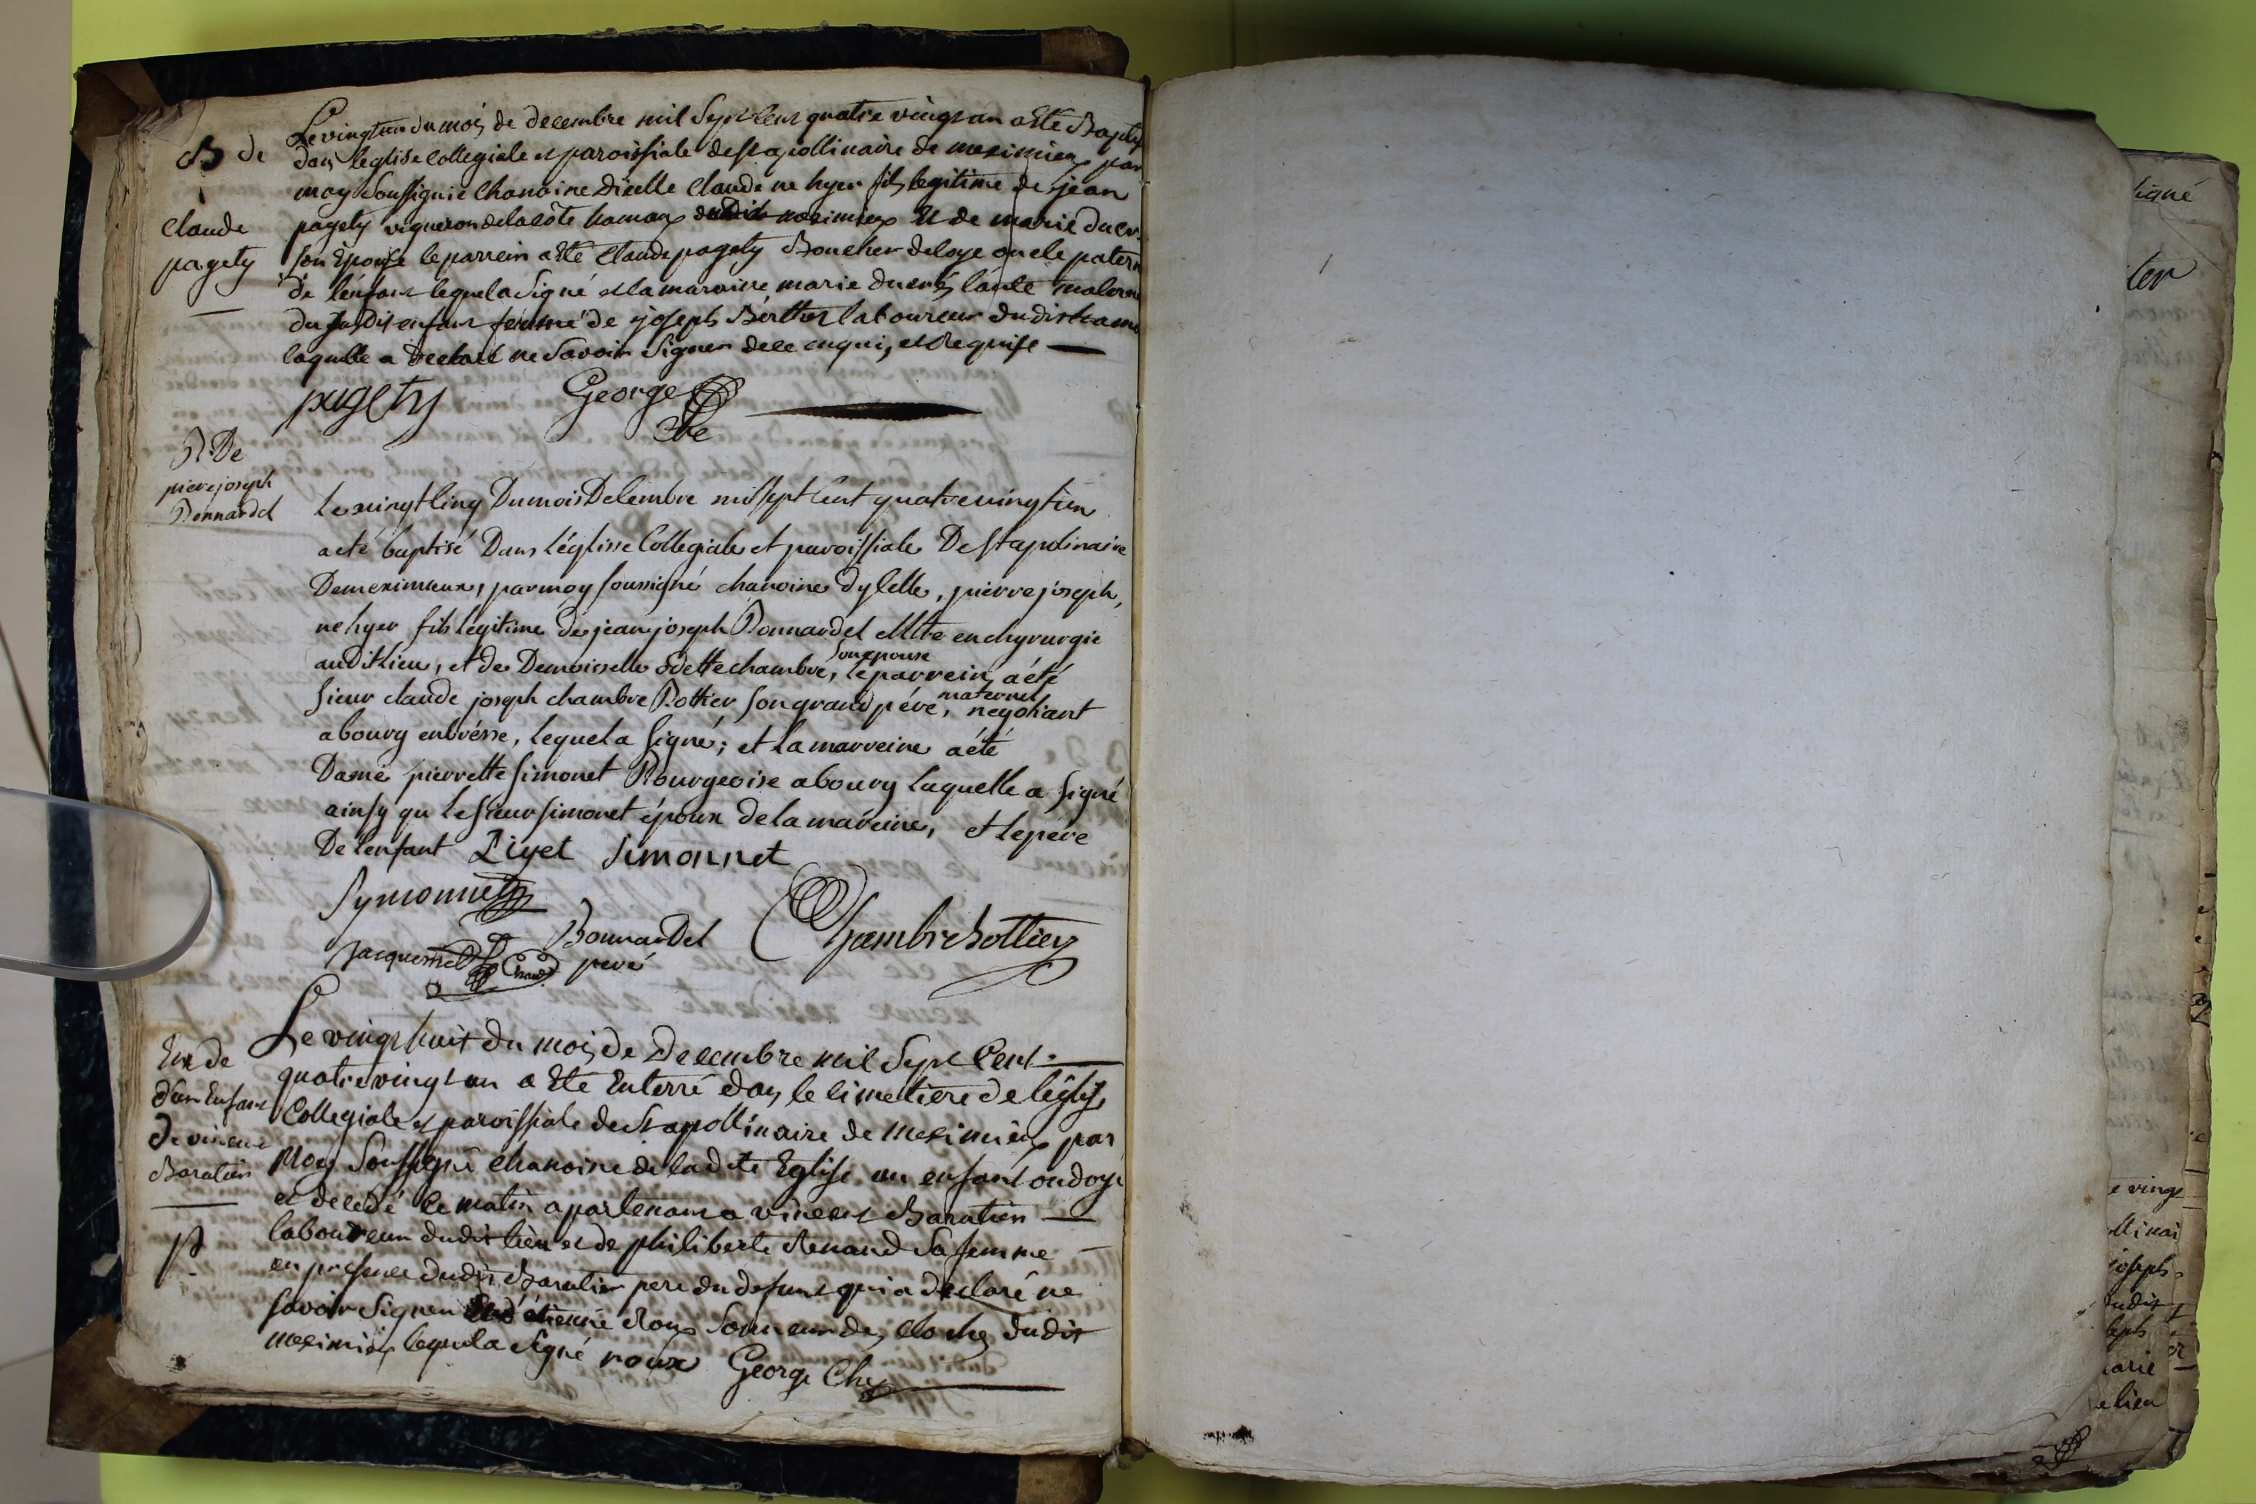 B de
claude
pagety
Le vingt un du mois de decembre mil Sept Cent quatre vingt un a Eté Baptisé
dans leglise collegiale et paroissiale de st apollinaire de meximieux par
moy Soussigné Chanoine Dicelle Claude ne hyer fils legitime de jean
pagety vigneron de la côte hamaux dudit meximieux Et de marie
son Epouse le parrein a été Claude pagety Boucher de loye oncle patern
de l'enfant lequel a Signé et la maraine marie tante matern
du Susdit enfant femme de joseph Berthet laboureur dudit hame
laquelle a Declaré ne Savoir Signer de ce enquis et Requise
pagety George
che
B. De
pierre joseph
Bonnardel
Le vingt Cinq Du mois De Cembre mil Sept Cent quatre vingt un
a eté baptisé Dans l'églisse Collegiale et paroissiale De St apolinaire
De meximieux, par moy soussigné chanoine dycelle, pierre joseph,
ne hyer fils legitime de jean joseph Bonnardel Mtre en chyrurgie
audit lieu, et de Demoisselle Odette chambre, son epouse le parrein a été
Sieur claude joseph chambre Bottier son grand pére, maternel negotiant
a bourg en brésse, lequel a Signé; et la marreine a été
Dame pierrette Simonet Bourgeoise a bourg laquelle a Signé
ainsy qu le Sieur Simonet époux de la mareine, et le pére
De l'enfant Liget Simonnet
Symonnet
Jacquemet Chan
Bonnardel
peré
Chambre Bottier
Ent de
d'un Enfant
de vincent
Baratier
Le vingt huit du mois de Decembre mil Sept Cent
quatre vingt un a Eté Enterré dans le Cimetiere de l'église
Collegiale et paroissiale de St apollinaire de meximieux par
Moy Soussigné chanoine de la dite Eglise un enfant ondoyé
et decedé ce matin apartenant a vincent Baratier
laboureur dudit lieu et de philiberte Renaud Sa femme
en presence dudit Baratier pere du defunt qui a declaré ne
savoir Signer étienne Roux Sonneur des cloches dudit
meximieux lequel a Signé roux George Che
igné
ter
e vingt
olli nai
joseph
dudit
marie
e lieu